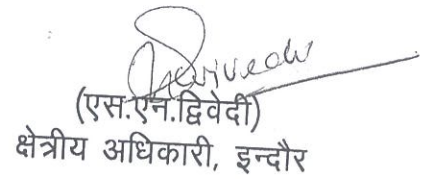 (एस.एन.द्विवेदी)
क्षेत्रीय अधिकारी, इन्दौर